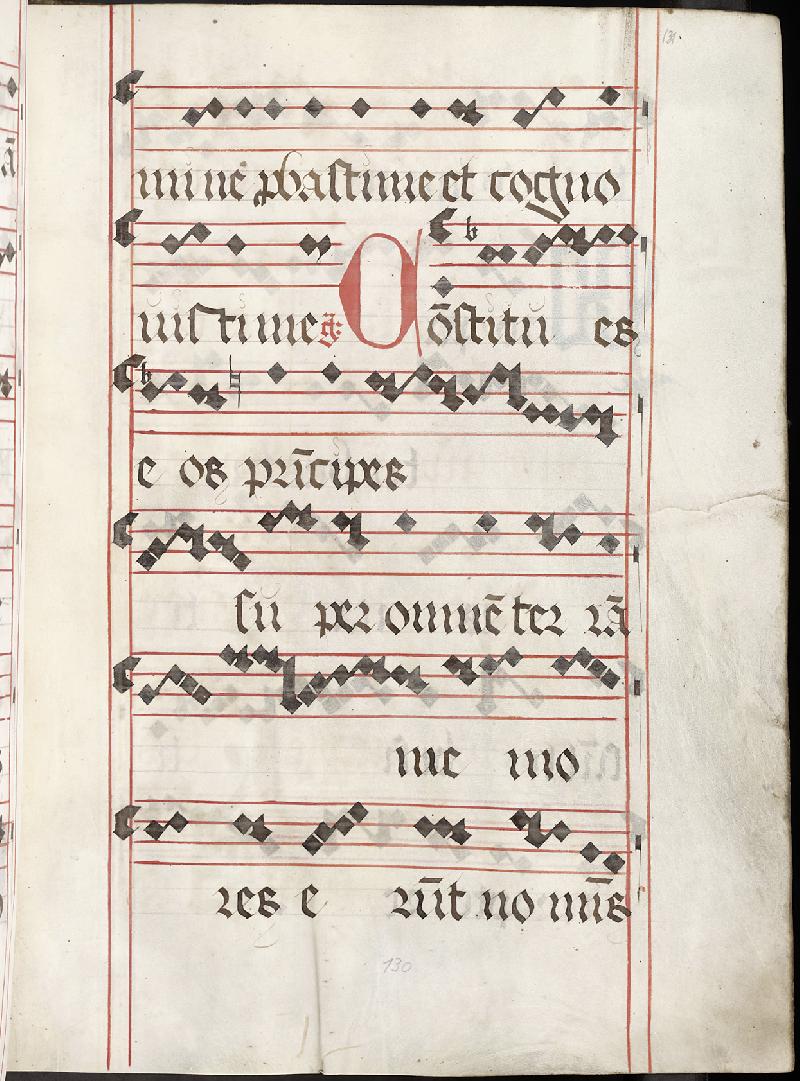 131.
mi ne ꝓbasti me et cogno
uisti me g̃: Cōstitu es
e os prīcipes
su per omnē ter rā
me mo
res e rūt no mīs
130